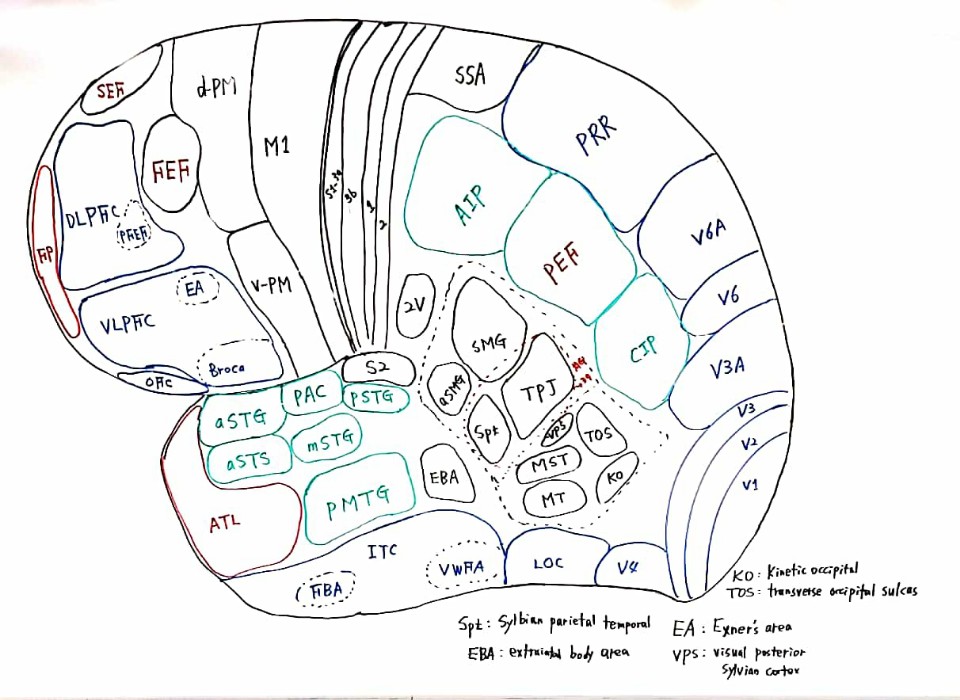 SEF
d-PM
M1
SSA
PRR
FEF
DLPFC
PFEF
FP
3b
1
2
AIP
V6A
PEF
V6
V-PM
EA
VLPFC
2V
SMG
CIP
V3A
Broca
OFC
S2
aSMG
TPJ
AG
PAC
PSTG
aSTG
mSTG
aSTS
Spt
VPS
TOS
V3
V2
V1
MST
KO
MT
EBA
PMTG
ATL
ITC
VWFA
FBA
LOC
V4
KO: Kinetic occipital
TOS: transverse occipital sulcus
Spt: Sylbian parietal temporal
EA: Exner's area
EBA: body area
VPS: visual posterior
Sylvian cortex